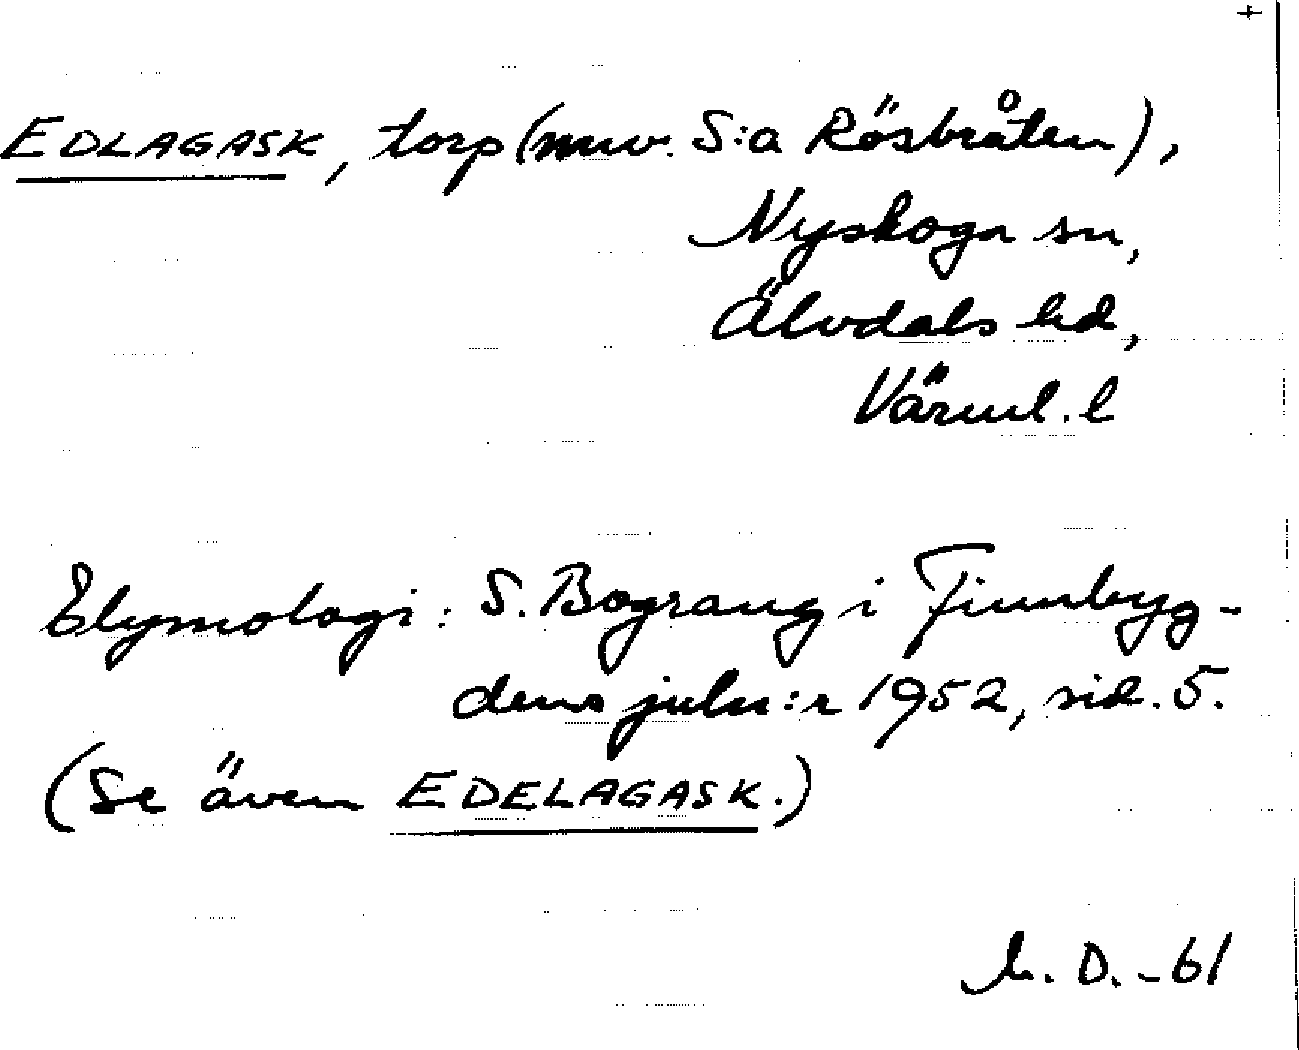 EDLAGASK, torp (nuv. S:a Rösbråten),
Nyskoga sn,
Älvdals hd,
Värml. l
Etymologi: S. Bograng i Finnbyg-
dens julnr:r 1952, sid. 5.
(Se även EDELAGASK.)
D. -61